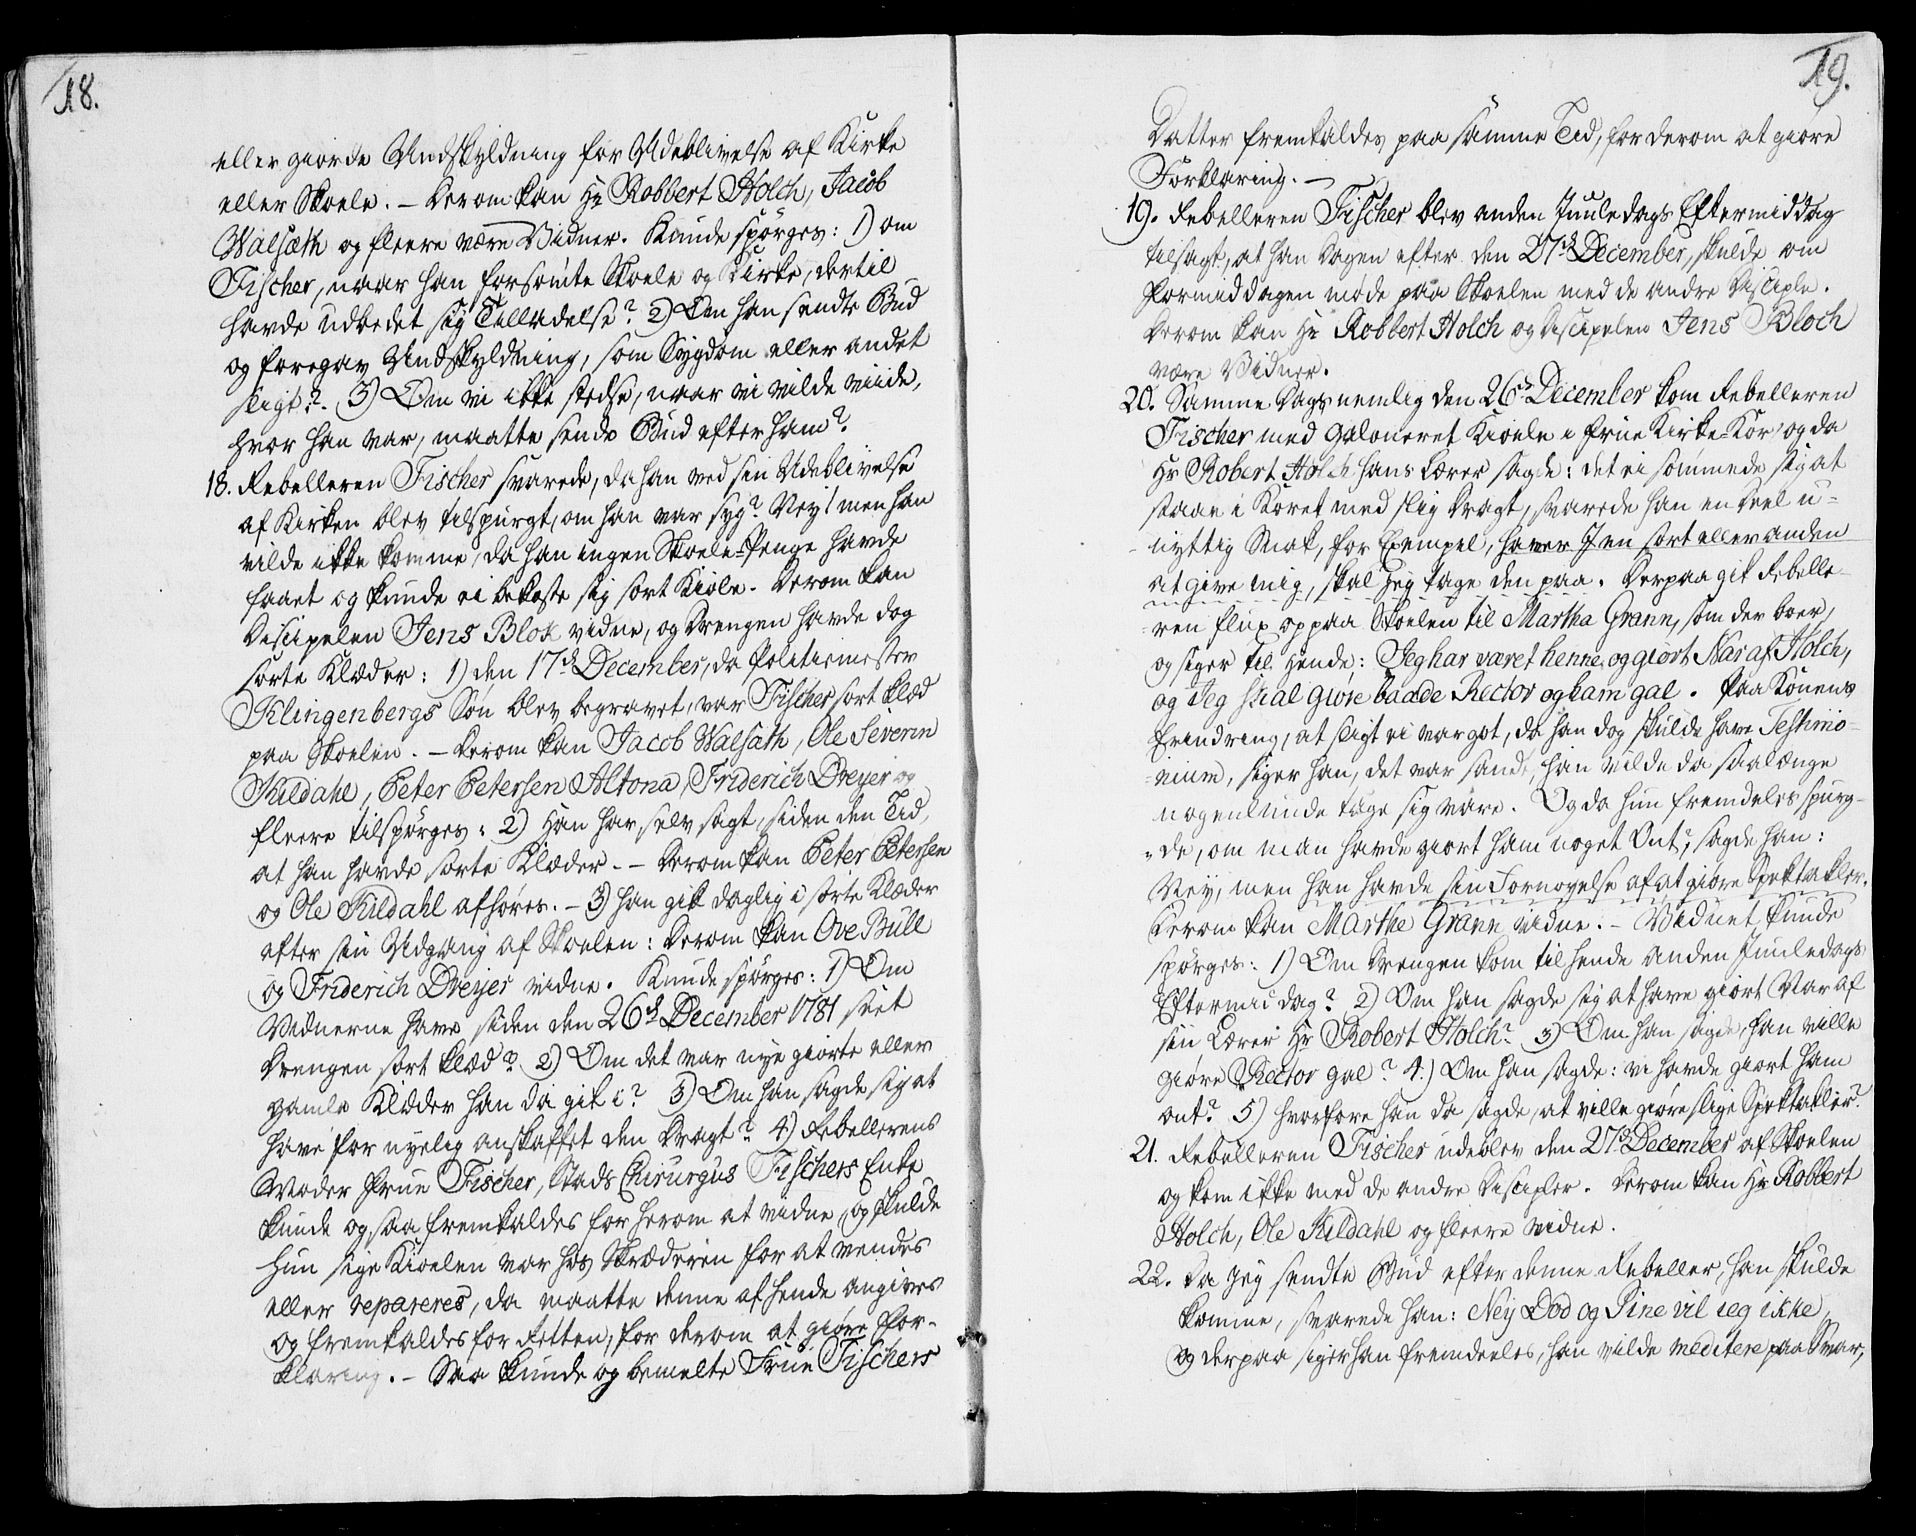 18.
eller giorde Undskyldning for Udeblivelse af Kirke
eller Skoele. – Derom kan Hr Robbert Holch, Jacob
Walsæth og fleere være Vidner. Kunde spørges: 1) om
Fischer, naar han forsømte Skoele og Kirke, dertil
havde udbedet sig Tilladelse? 2) Om han sendte Bud
og foregav Undskyldning, som Sygdom eller andet
sligt? 3) Om vi ikke stedse, naar vi vilde viide,
hvor han var, maatte sende Bud efter ham?
18. Rebelleren Fischer svarede, da han ved sin Udeblivelse
af Kirken blev tilspurgt, om han var syg? Ney! men han
vilde ikke komme, da han ingen Skoele-Penge havde
faaet og kunde ei bekoste sig sort Kiole. Derom kan
Discipelen Jens Blok vidne, og Drengen havde dog
sorte Klæder: 1) den 17de December, da Politiemester
Klingenbergs Søn blev begravet, var Fischer sort klæd
paa Skoelen. – Derom kan Jacob Walsæth, Ole Severin
Kildahl, Peter Petersen Altona, Friderich Dreyer og
fleere tilspørges: 2) Han har selv sagt, siden den Tid,
at han havde sorte Klæder. – Derom kan Peter Petersen
og Ole Kildahl afhøres. – 3) han gik daglig i sorte Klæder
efter sin Udgang af Skoelen: Derom kan Ove Bull
og Friderich Dreyer vidne. Kunde spørges: 1) Om
Vidnerne have siden den 26de December 1781 seet
Drengen sort klæd? 2) Om det var nye giorte eller
gamle Klæder han da gik i? 3) Om han sagde sig at
have for nyelig anskaffet den Dragt? 4) Rebellerens
Moder Frue Fischer, Stads Chirurgus Fischers Enke
kunde ogsaa fremkaldes for herom at vidne, og skulde
hun sige Kiolen var hos Skræderen for at vendes
eller repareres, da maatte denne af hende angives
og fremkaldes for Retten, for derom at giøre For-
klaring. – Saa kunde og bemelte Frue Fischers
19.
Datter fremkaldes paa samme Tid, for derom at giøre
Forklaring. –
19. Rebelleren Fischer blev anden Juuledags Eftermiddag
tilsagt, at han Dagen efter den 27de December, skulde om
Formiddagen møde paa Skoelen med de andre Disciple.
Derom kan Hr Robbert Holch og Discipelen Jens Bloch
være Vidner.
20. Samme Dags nemlig den 26de December kom Rebelleren
Fischer med Galoneret Kiole i Frue Kirke-Kor, og da
Hr Robert Holch hans Lærer sagde: det ei sømmede sig at
staae i Koret med slig Dragt, svarede han en Deel u-
nyttig Snak, for Exempel, haver I en sort eller anden
at give mig, skal Jeg tage den paa. Derpaa gik Rebelle-
ren flux op paa Skoelen til Martha Grann, som der boer,
og siger til hende: Jeg har været henne og giort Nar af Holch,
og Jeg skal giøre baade Rector og ham gal. Paa Konens
Erindring, at sligt ei var got, da han dog skulde have Testimo-
nium, siger han, det var sandt, han vilde da saalænge
nogenlunde tage sig vare. Og da hun fremdeles spurg-
de, om man havde giort ham noget Ont, sagde han:
Ney, men han havde sin Fornøyelse af at giøre Spektakler.
Derom kan Marthe Grann vidne. – Vidnet kunde
spørges: 1) Om Drengen kom til hende anden Juuledags
Eftermiddag? 2) Om han sagde sig at have giort Nar af
sin Lærer Hr Robert Holch? 3) Om han sagde, han ville
giøre Rector gal? 4.) Om han sagde: vi havde giort ham
ont? 5) hvorfore han da sagde, at ville giøre slige Spektakler?
21. Rebelleren Fischer udeblev den 27de December af Skoelen
og kom ikke med de andre Discipler. Derom kan Hr Robbert
Holch, Ole Kildahl og fleere vidne.
22. Da Jeg sendte Bud efter denne Rebeller, han skulde
komme, svarede han: Ney Død og Pine vil jeg ikke,
og derpaa siger han fremdeeles, han vilde meditere paa Svar,